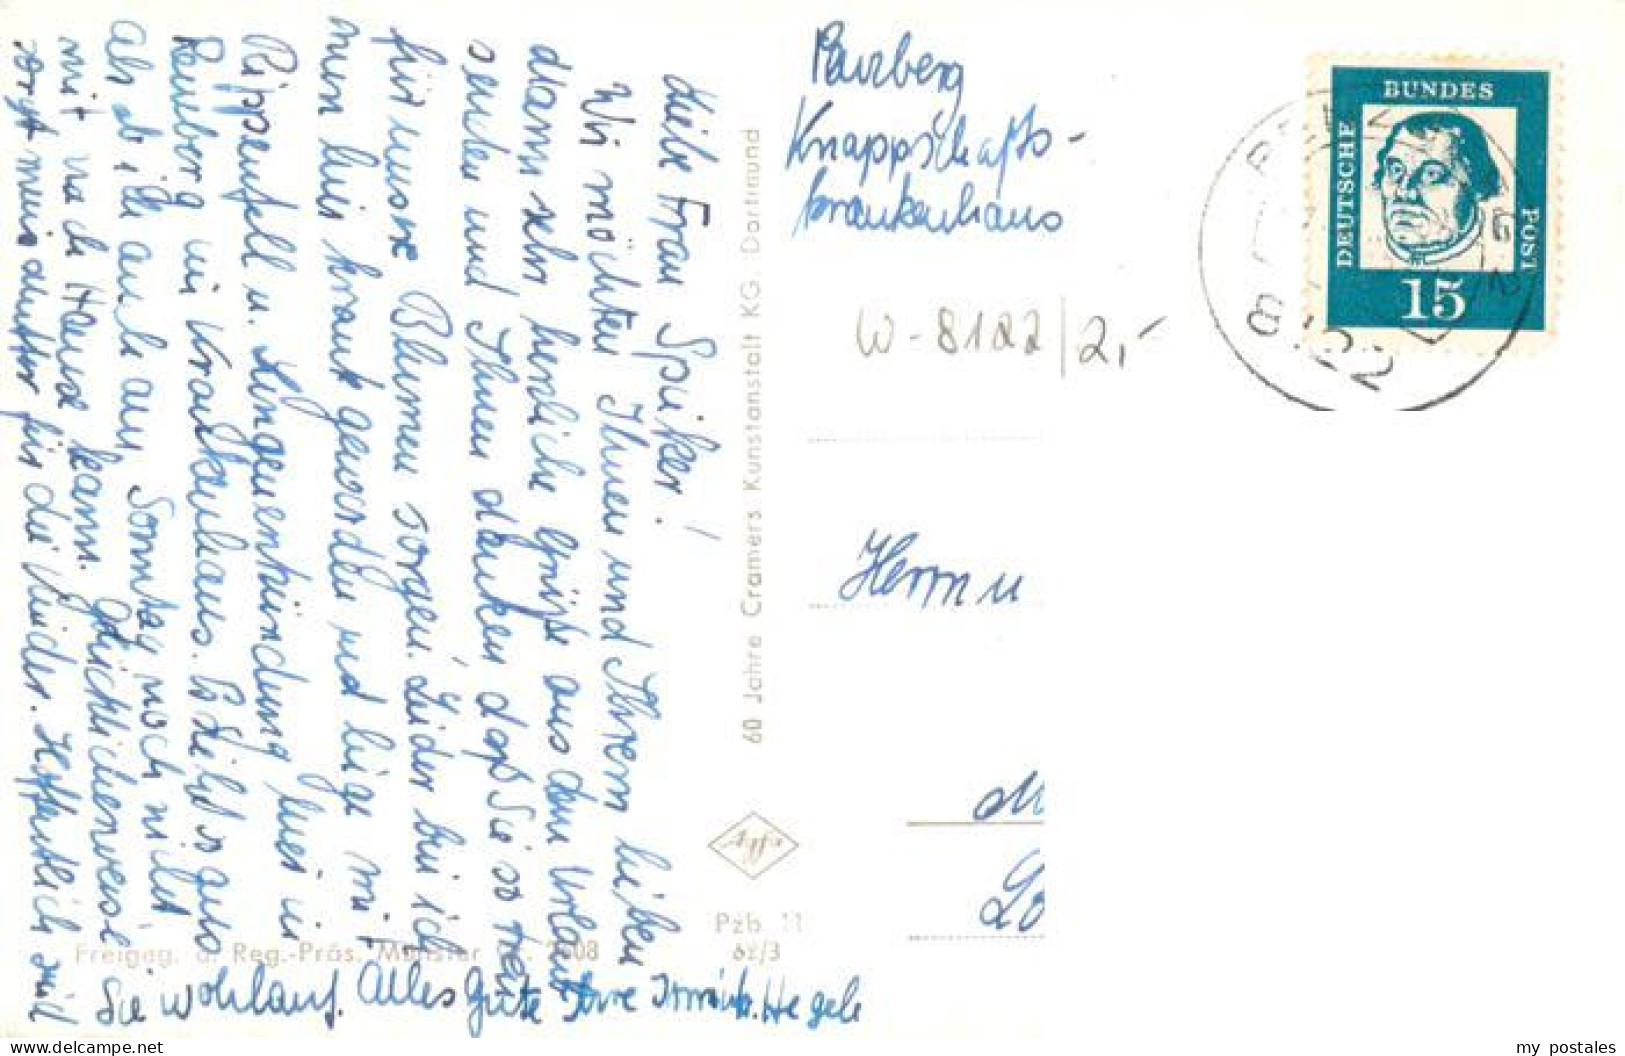 Liebe Frau Spieker!
Wir möchten Ihnen und Ihrem lieben
Mann sehr herzliche Grüße aus dem Urlaub
senden und Ihnen danken daß Sie so treu
für unsere Blumen sorgen. Leider bin ich
nun hier krank geworden und liege mit
Rippenfell u. Lungenentzündung hier in
Penzberg im Krankenhaus. Es sieht so aus
als ob ich auch am Sonntag noch nicht
mit nach Hause kann. Glücklicherweise
sorgt meine Mutter für die Kinder. Hoffentlich sind
Sie wohlauf. Alles Gute Ihre Irmin. Hegele
60 Jahre Cramers Kunstanstalt KG. Dortmund
Pzb 11
62/3
Freigeg. d. Reg.-Präs. Münster 2608
Penzberg
Knappschafts-
krankenhaus
W-8122/2,-
Herrn u
DEUTSCHE
BUNDES
POST
15
8122